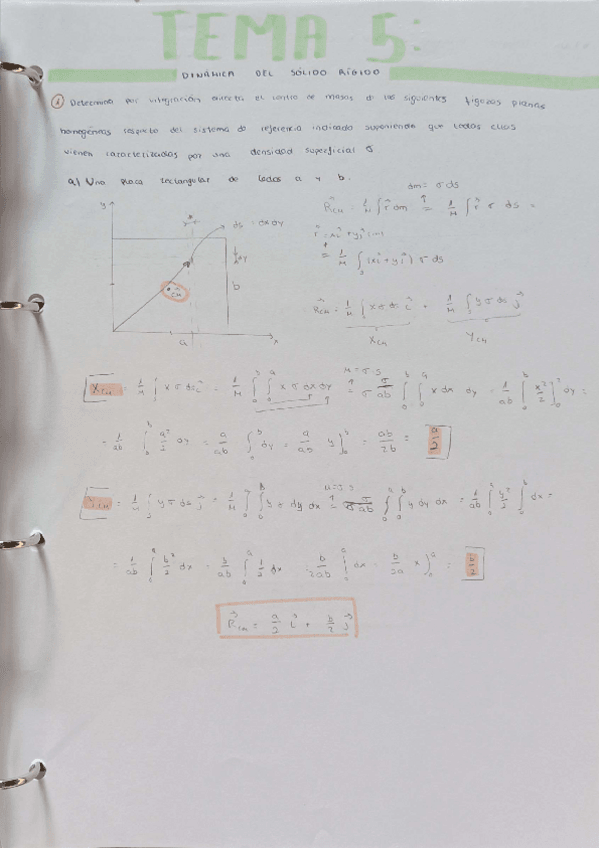 TEMA 5:
DINÁMICA DEL SÓLIDO RÍGIDO
① Determina por integración directa el centro de masas de las siguientes figuras planas
homogéneas respecto del sistema de referencia indicado suponiendo que todas ellas
vienen caracterizadas por una densidad superficial σ
a) Una placa rectangular de lados a y b.
dm = σ ds
R⃗cm = 1/M ∫ r⃗ dm = 1/M ∫ r⃗ σ ds =
y
ds = dx dy
dy
b
cm
a
x
= 1/M ∫s (xi⃗ + yj⃗) σ ds
R⃗cm = 1/M ∫ xσ ds i⃗ + 1/M ∫ yσ ds j⃗
Xcm Ycm
M = σ·s
Xcm = 1/M ∫ x σ ds i⃗ = 1/M ∫₀ᵇ ∫₀ᵃ x σ dx dy = σ/σab ∫₀ᵇ ∫₀ᵃ x dx dy = 1/ab ∫₀ᵇ x²/2 ]₀ᵃ dy =
= 1/ab ∫₀ᵇ a²/2 dy = a/ab ∫₀ᵇ dy = a/ab y]₀ᵇ = ab/2b = a/2
Ycm = 1/M ∫ y σ ds j⃗ = 1/M ∫ ∫₀ᵇ y σ dy dx = σ/σab ∫₀ᵃ ∫₀ᵇ y dy dx = 1/ab ∫₀ᵃ y²/2 ]₀ᵇ dx =
= 1/ab ∫₀ᵃ b²/2 dx = b/ab ∫₀ᵃ 1/2 dx = b/2ab ∫₀ᵃ dx = b/2a x]₀ᵃ = b/2
R⃗cm = a/2 i⃗ + b/2 j⃗